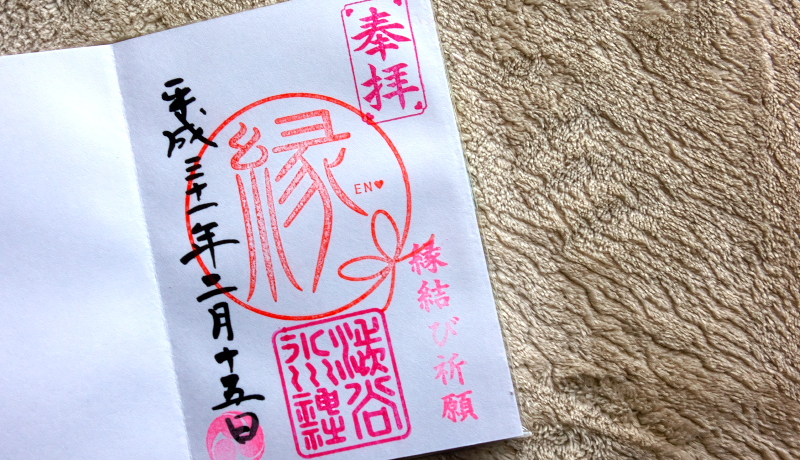 奉拝
縁
EN♥
縁結び祈願
渋谷
氷川神社
平成三十一年二月十五日